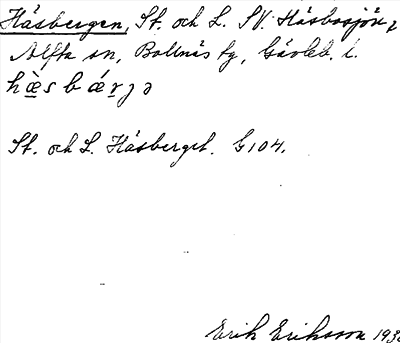 Håsbergen, St. och L. SV. Håsbosjön,
Alfta sn, Bollnäs tg, Gävleb. l.
hæ̀sbǽrjə
St. och L. Håsberget. G104.
Erik Eriksson 193